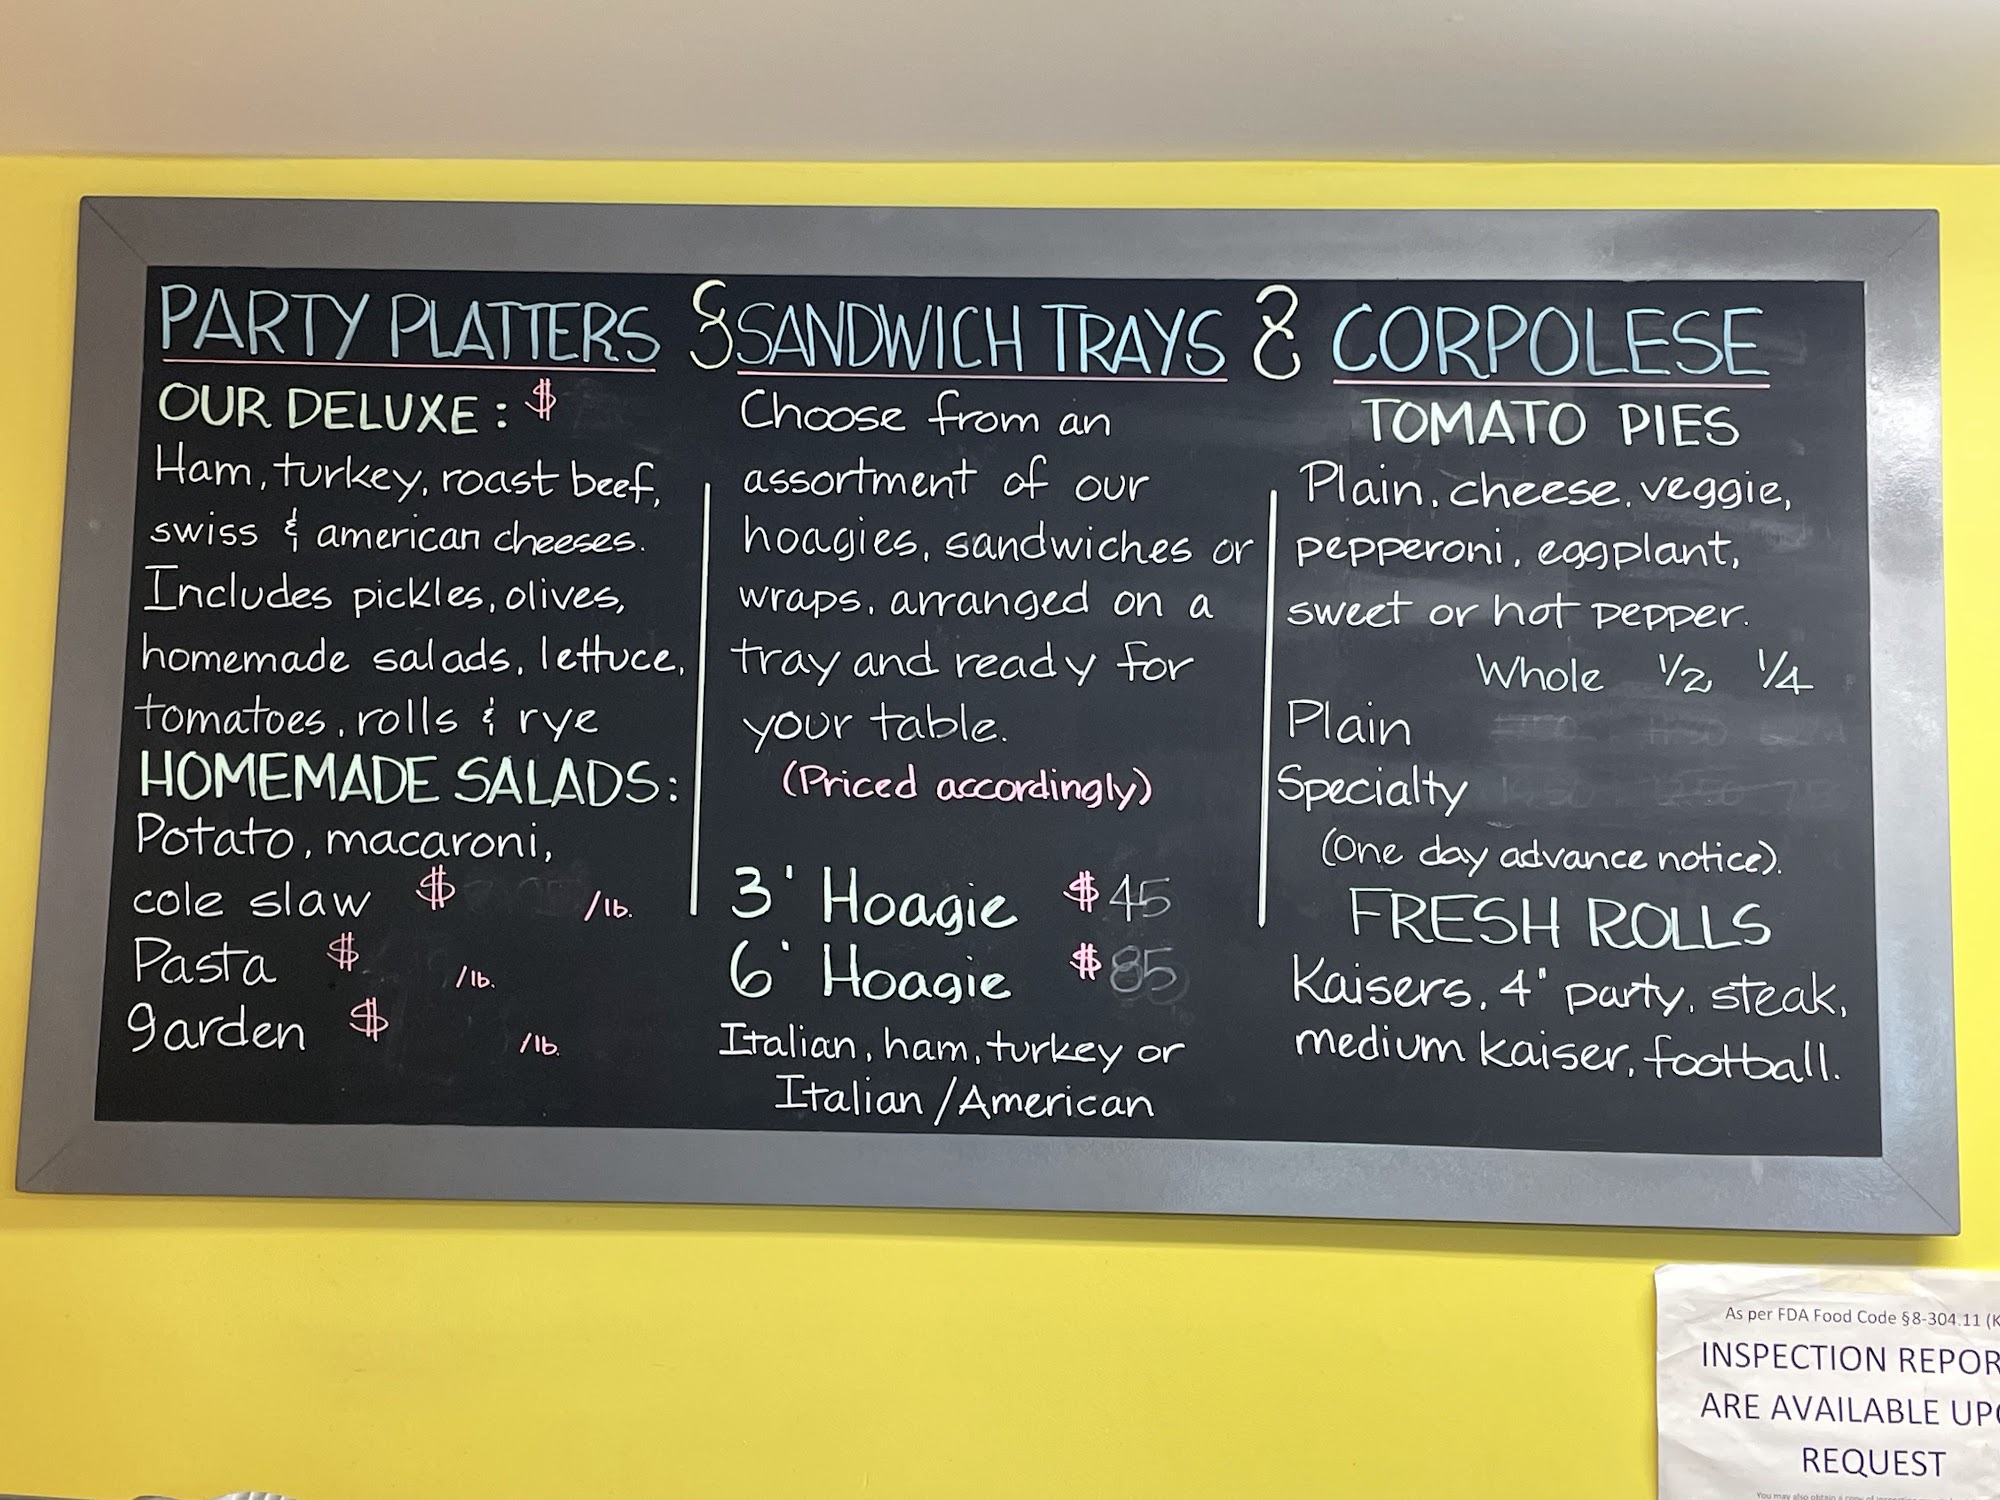 PARTY PLATTERS
OUR DELUXE: $
Ham, turkey, roast beef,
swiss & american cheeses.
Includes pickles, olives,
homemade salads, lettuce,
tomatoes, rolls & rye
HOMEMADE SALADS:
Potato, macaroni,
cole slaw $ /lb.
Pasta $ /lb.
garden $ /lb.
SANDWICH TRAYS
Choose from an
assortment of our
hoagies, sandwiches or
wraps, arranged on a
tray and ready for
your table.
(Priced accordingly)
3' Hoagie $45
6' Hoagie $85
Italian, ham, turkey or
Italian/American
CORPOLESE
TOMATO PIES
Plain, cheese, veggie,
pepperoni, eggplant,
sweet or hot pepper.
Whole 1/2 1/4
Plain
Specialty
(One day advance notice).
FRESH ROLLS
Kaisers, 4" party, steak,
medium kaiser, football.
As per FDA Food Code §8-304.11 (K
INSPECTION REPOR
ARE AVAILABLE UPO
REQUEST